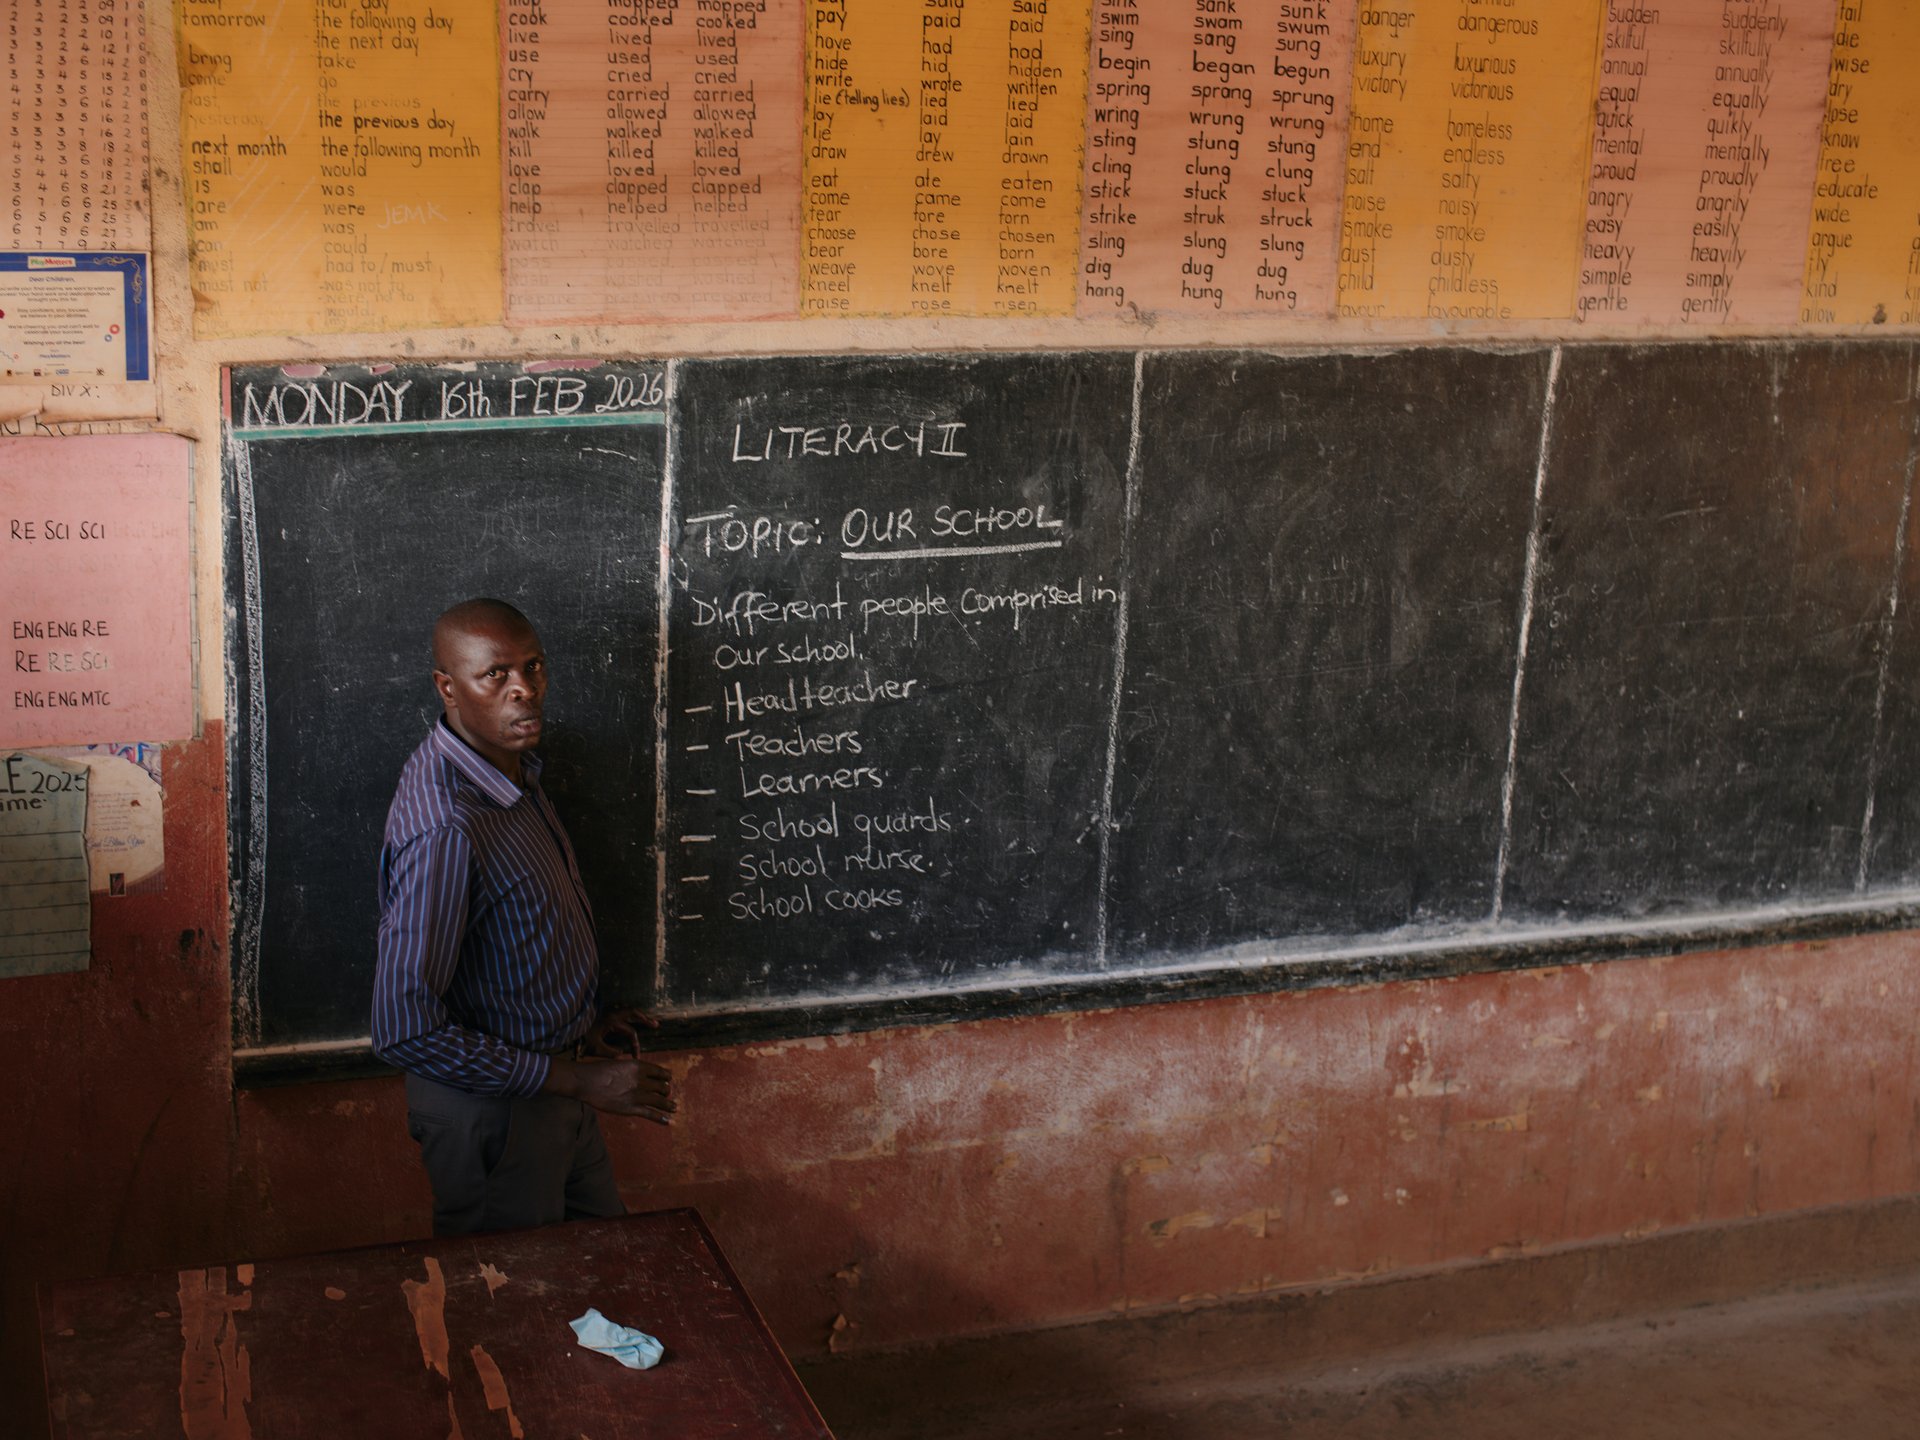 tomorrow the following day
the next day
bring take
come go
last the previous
yesterday the previous day
next month the following month
shall would
is was
are were
am was
can could
must had to/must
must not was not to
were not to
would
JEMK
mopped mopped
cook cooked cooked
live lived lived
use used used
cry cried cried
carry carried carried
allow allowed allowed
walk walked walked
kill killed killed
love loved loved
clap clapped clapped
help helped helped
travel travelled travelled
watch watched watched
prepare prepared prepared
said said
pay paid paid
have had had
hide hid hidden
write wrote written
lie (telling lies) lied lied
lay laid laid
lie lay lain
draw drew drawn
eat ate eaten
come came come
tear tore torn
choose chose chosen
bear bore born
weave wove woven
kneel knelt knelt
raise rose risen
sink sank sunk
swim swam swum
sing sang sung
begin began begun
spring sprang sprung
wring wrung wrung
sting stung stung
cling clung clung
stick stuck stuck
strike struk struck
sling slung slung
dig dug dug
hang hung hung
danger dangerous
luxury luxurious
victory victorious
home homeless
end endless
salt salty
noise noisy
smoke smoke
dust dusty
child childless
favour favourable
sudden suddenly
skilful skilfully
annual annually
equal equally
quick quikly
mental mentally
proud proudly
angry angrily
easy easily
heavy heavily
simple simply
gentle gently
fail
die
wise
dry
know
free
educate
wide
argue
fly
kind
allow
PlayMatters
Dear Children,
Wishing you all the best
PlayMatters
DIV X:
RE SCI SCI
ENG ENG RE
RE RE SCI
ENG ENG MTC
LE 2025
ime
MONDAY 16th FEB 2026
LITERACY II
TOPIC: OUR SCHOOL
Different people comprised in
our school.
– Headteacher.
– Teachers
– Learners.
– School guards.
– School nurse.
– School cooks